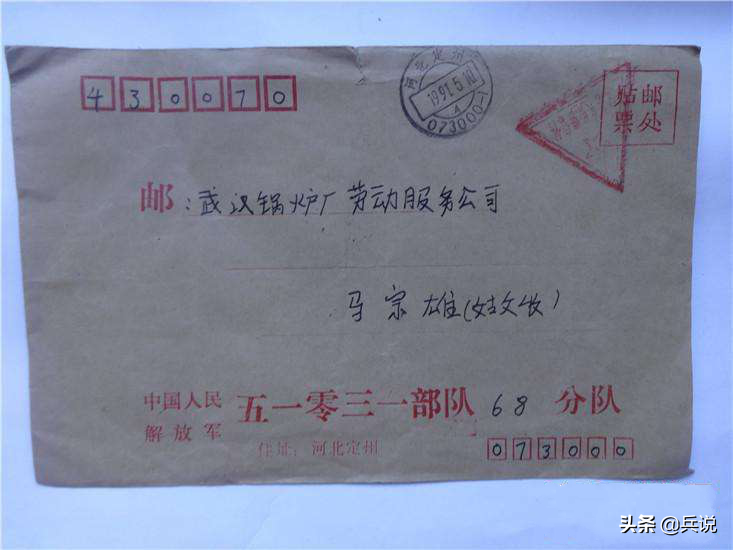 430070
河北定州
1991.5.10
A
073000-1
贴邮
票处
邮:武汉锅炉厂劳动服务公司
马宗雄(收)
中国人民
解放军
五一零三一部队 68 分队
住址:河北定州
073000
头条 @兵说